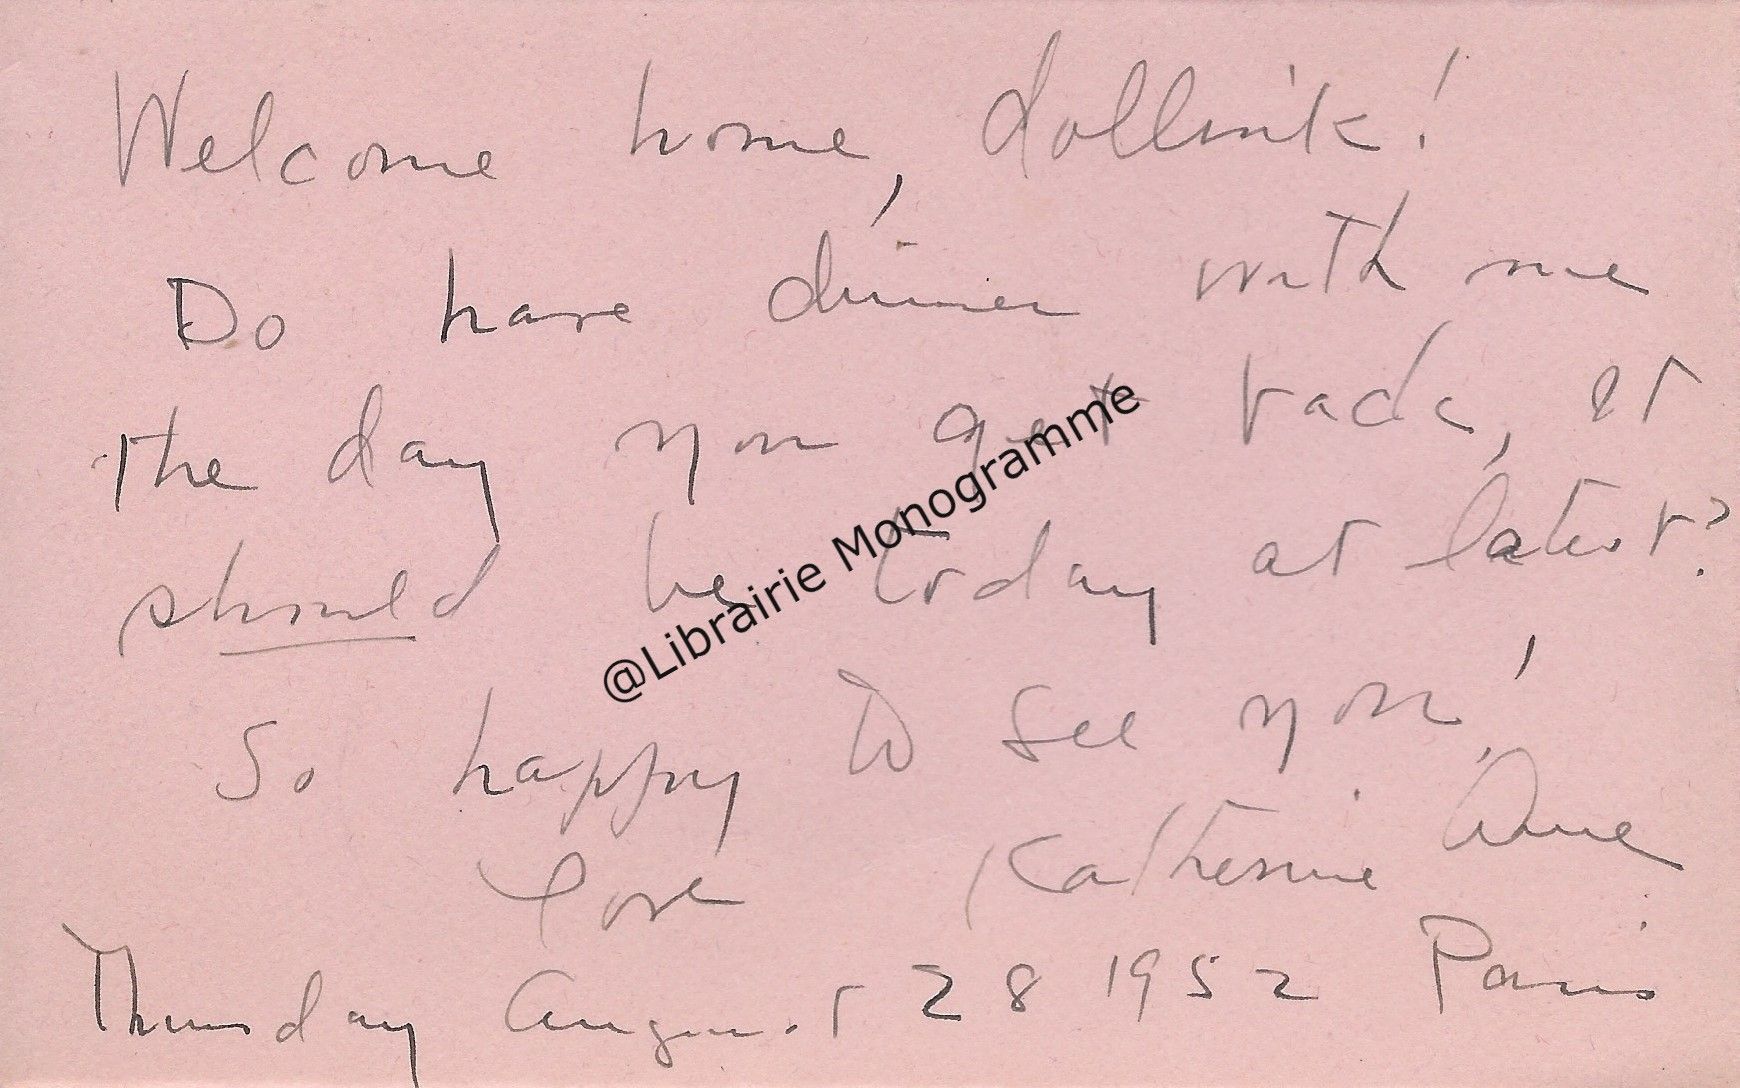 Welcome home, dollink!
Do have dinner with me
the day you get back, it
should be today at latest?
So happy to see you!
Love Katherine Anne
Thursday August 28 1952 Paris
@Librairie Monogramme